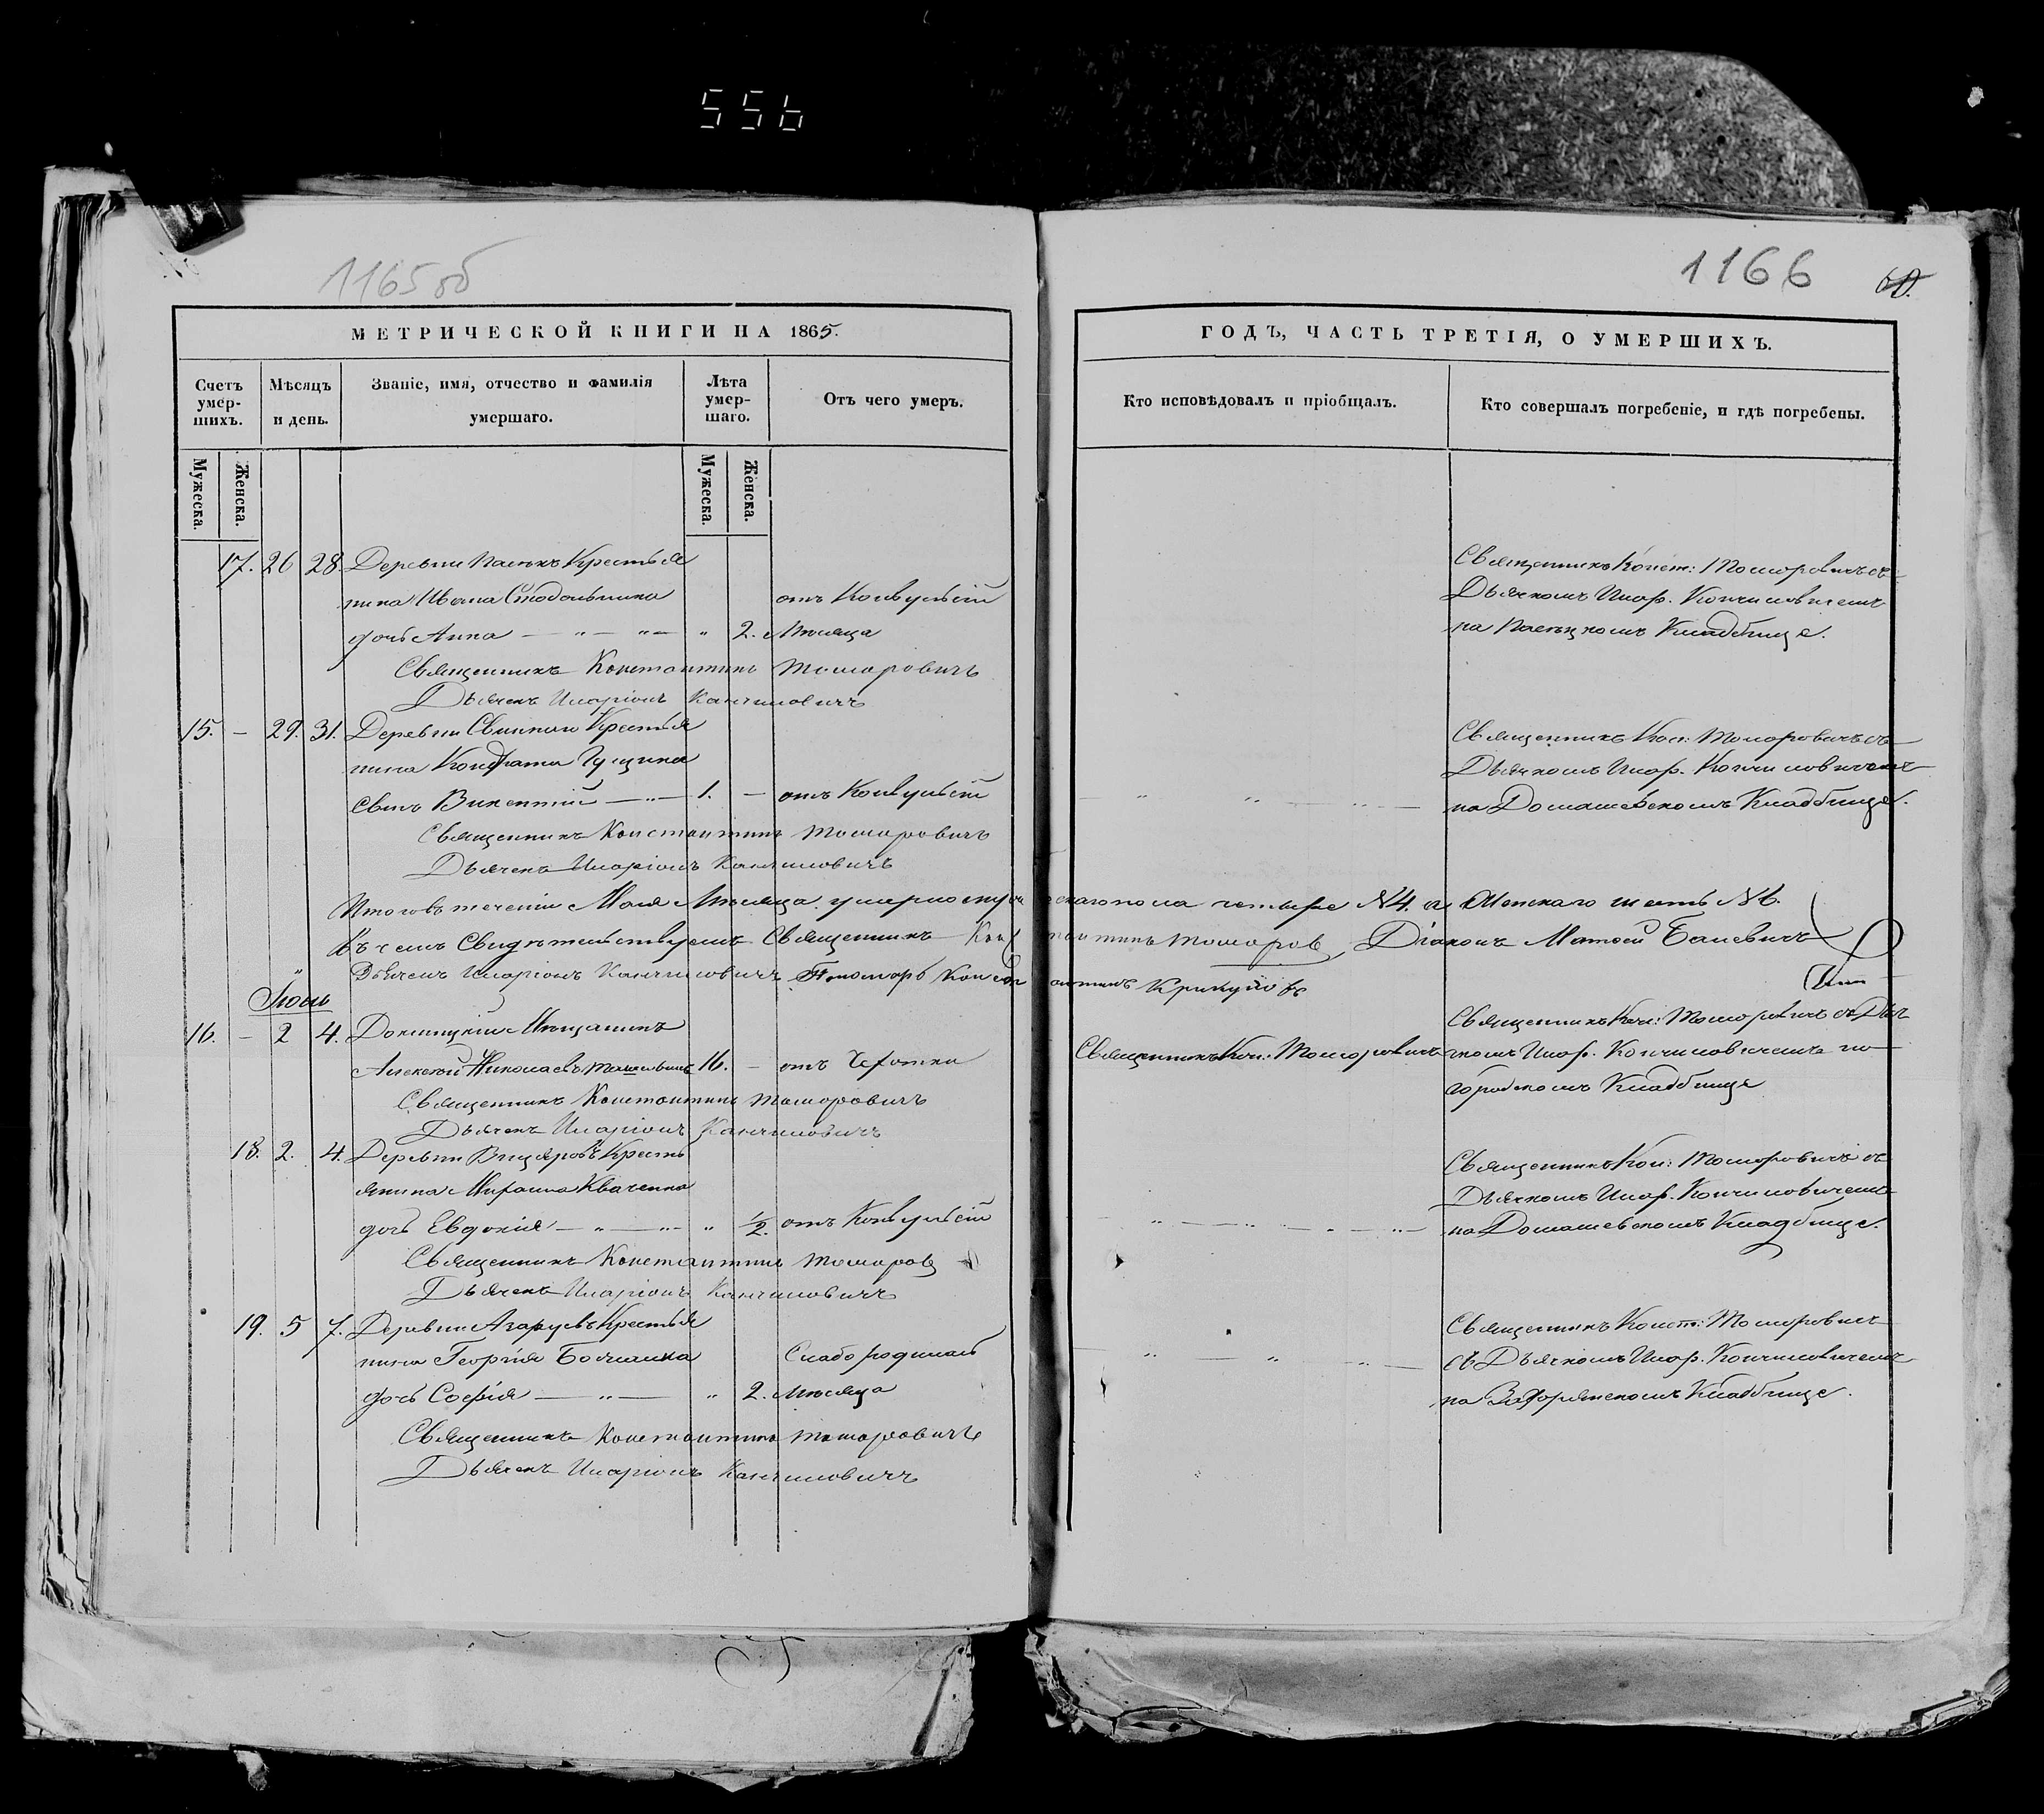 556
1165 об
1166
60.
МЕТРИЧЕСКОЙ КНИГИ НА 1865.
ГОДЪ, ЧАСТЬ ТРЕТІЯ, О УМЕРШИХЪ.
Счетъ умер-шихъ.
Мѣсяцъ и день.
Званіе, имя, отчество и фамилія умершаго.
Лѣта умер-шаго.
Отъ чего умеръ.
Кто исповѣдовалъ и пріобщалъ.
Кто совершалъ погребеніе, и гдѣ погребены.
Мужеска.
Женска.
Мужеска.
Женска.
17. 26 28. Деревни Крестья
нина Ивана Стодольника отъ Конвульсій
дочь Анна 2. Мѣсяца
Священникъ Конст: Томаровичъ съ
Дьячкомъ Илар. Канчиловичемъ
на Кладбище.
Священникъ Константинъ Томаровичъ
Дьячекъ Иларіонъ Канчиловичъ
15. – 29. 31. Деревни Крестья
нина Кондрата Гущина
сынъ Викентій 1. – отъ Конвульсій
Священникъ Кон: Томаровичъ съ
Дьячкомъ Илар. Канчиловичемъ
на Домашевскомъ Кладбище.
Священникъ Константинъ Томаровичъ
Дьячекъ Иларіонъ Канчиловичъ
Итого въ теченіи Мая Мѣсяца умерло мужескаго пола четыре N4. а Женскаго шесть N6.
Въ чемъ Свидѣтельствуемъ Священникъ Константинъ Томаров Діаконъ Матфей Балевичъ
Дьячекъ Иларіонъ Канчиловичъ Пономарь Константинъ
Іюнь
16. – 2 4. Докшицкій Мѣщанинъ
Алексѣй Николаевъ 16. – отъ Чахотки
Священникъ Кон: Томаровичъ
Священникъ Кон: Томаровичъ съ Дья
чкомъ Илар. Канчиловичемъ на
городскомъ Кладбище
Священникъ Константинъ Томаровичъ
Дьячекъ Иларіонъ Канчиловичъ
18. 2. 4. Деревни Кресть
янина Кваченка
дочь Евдокія ½. отъ Конвульсій
Священникъ Кон: Томаровичъ съ
Дьячкомъ Илар. Канчиловичемъ
на Домашевскомъ Кладбище.
Священникъ Константинъ Томаров
Дьячекъ Иларіонъ Канчиловичъ
19. 5 7. Деревни Крестья
нина Георгія Слабо родилась
дочь Софія 2. Мѣсяца
Священникъ Конст: Томаровичъ
съ Дьячкомъ Илар. Канчиловичемъ
на Кладбище.
Священникъ Константинъ Томаровичъ
Дьячекъ Иларіонъ Канчиловичъ